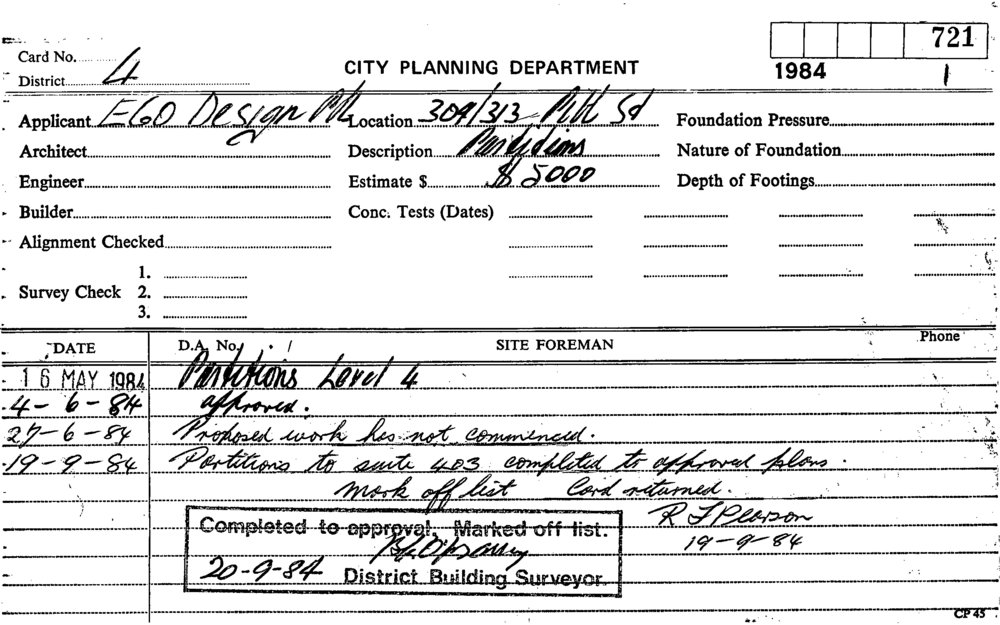 721
Card No.
District 4
CITY PLANNING DEPARTMENT
1984 1
Applicant EGO Design P/L Location 304/313 Pitt St Foundation Pressure
Architect Description Partitions Nature of Foundation
Engineer Estimate $ $5000 Depth of Footings
Builder Conc. Tests (Dates)
Alignment Checked
1.
Survey Check 2.
3.
DATE D.A. No. SITE FOREMAN Phone
16 MAY 1984 Partitions Level 4
4-6-84 approved.
27-6-84 Proposed work has not commenced.
19-9-84 Partitions to suite 403 completed to approved plans.
Mark off list Card returned.
R J Pearson
19-9-84
Completed to approval. Marked off list.
20-9-84 District Building Surveyor.
CP 45